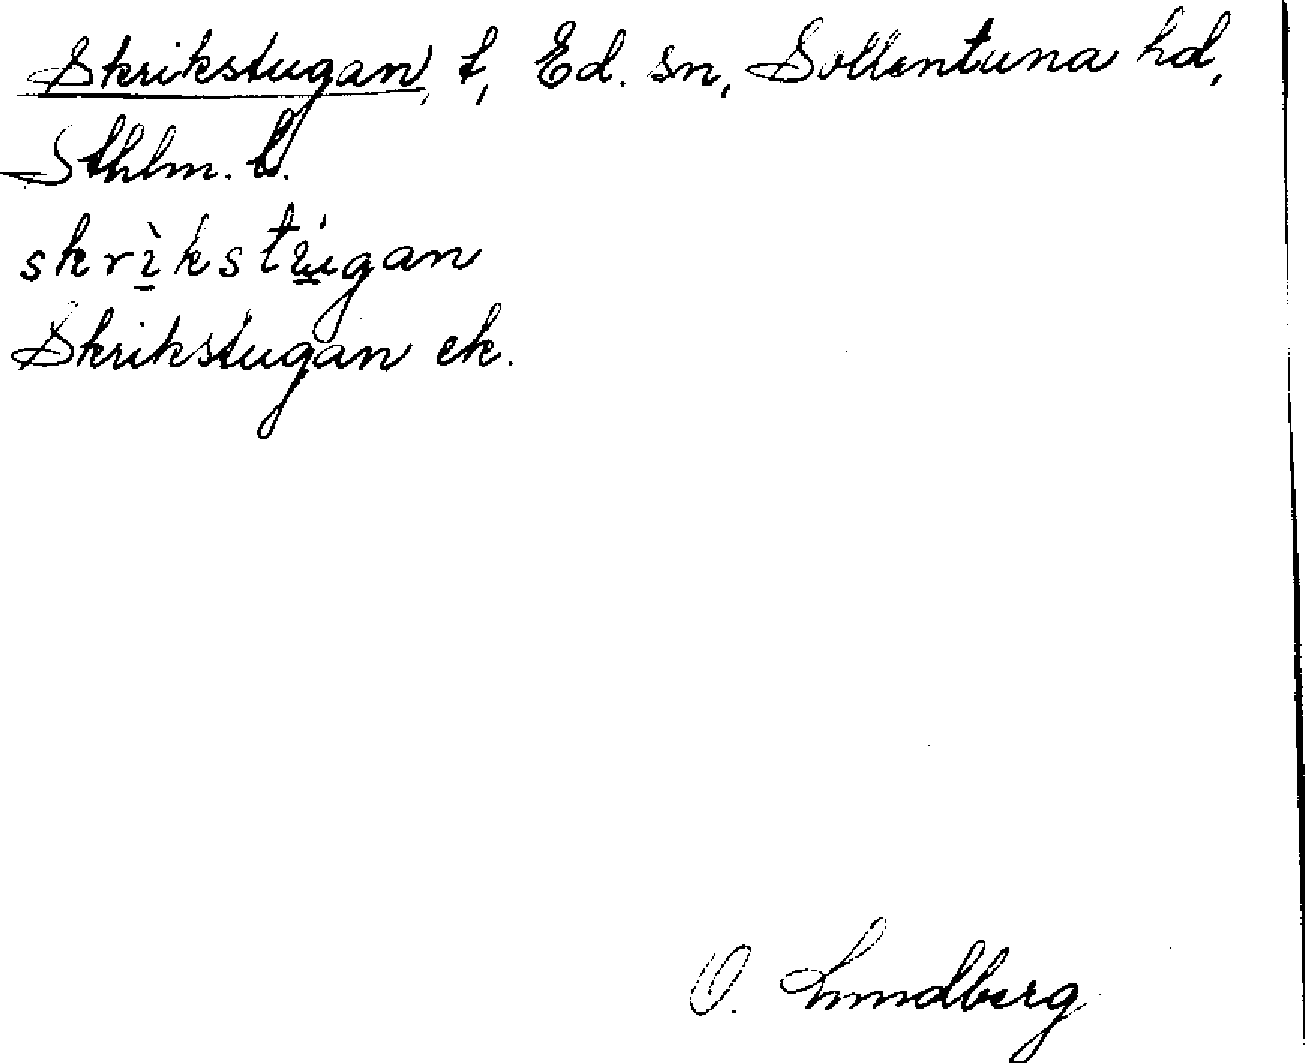 Skrikstugan, t, Ed. sn, Sollentuna hd,
Sthlm. l.
skrìkstùgan
Skrikstugan ek.
O. Lundberg